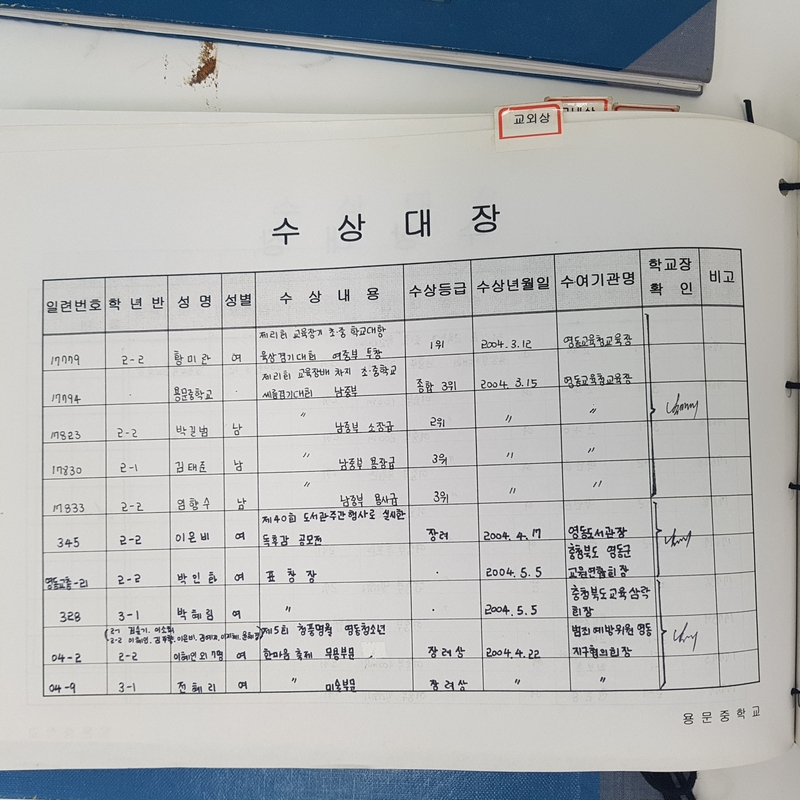 교외상
수 상 대 장
일련번호 학 년 반 성 명 성별 수 상 내 용 수상등급 수상년월일 수여기관명 학교장 확 인 비고
제21회 교육장기 초·중 학교대항
17779 2-2 황미란 여 육상경기대회 여중부 투창 1위 2004. 3. 12 영동교육청교육장
제21회 교육장배 차지 초·중학교
17794 · 용문중학교 · 씨름경기대회 남중부 종합 3위 2004. 3. 15 영동교육청교육장
17823 2-2 박길범 남 〃 남중부 소장급 2위 〃 〃
17830 2-1 김태준 남 〃 남중부 용장급 3위 〃 〃
17833 2-2 염항수 남 〃 남중부 용사급 3위 〃 〃
제40회 도서관주간행사로 실시한
345 2-2 이은비 여 독후감 공모전 장려 2004. 4. 17 영동도서관장
충청북도 영동군
2-2 박인하 여 표 창 장 · 2004. 5. 5 교원연합회장
충청북도교육삼락
328 3-1 박혜림 여 〃 · 2004. 5. 5 회장
제5회 청풍명월 영동청소년 범죄예방위원 영동
04-2 2-2 이혜인 외 7명 여 한마음 축제 무용부문 장려상 2004. 4. 22 지구협의회장
04-9 3-1 전혜리 여 〃 미술부문 장려상 〃 〃
용문중학교